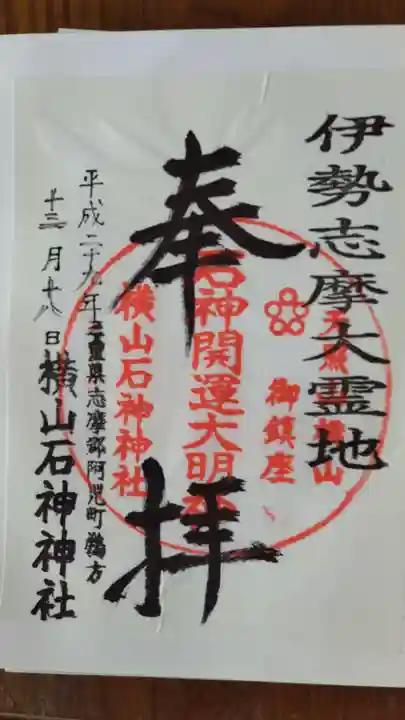 伊勢志摩大霊地
奉拝
天照
横山
御鎮座
石神開運大明
横山石神神社
三重県志摩郡阿児町鵜方
平成二十九年
十二月十八日
横山石神神社